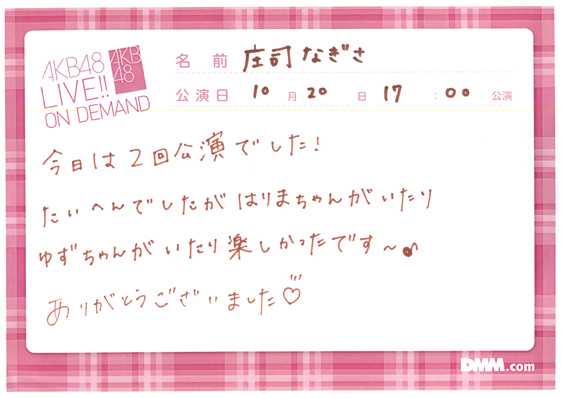 AKB48
LIVE!!
ON DEMAND
AKB
48
名前 庄司なぎさ
公演日 10月20日 17:00公演
今日は2回公演でした!
たいへんでしたがはりまちゃんがいたり
ゆずちゃんがいたり楽しかったです〜♪
ありがとうございました♡
DMM.com